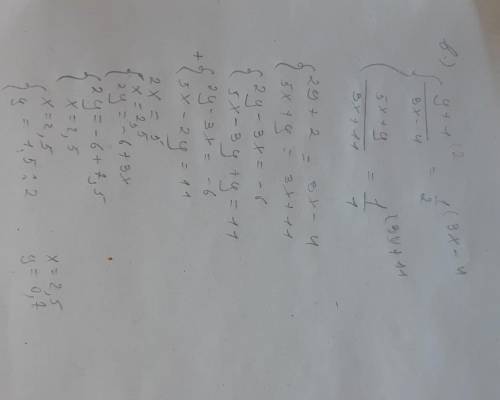 в.) { y+1 (2 / 3x-4 = 1 (3x-4 / 2
{ 5x+y / 3x+11 = 1 (3y+11 / 1
{ 2y+2 = 3x-4
5x+y = 3x+11
{ 2y-3x=-6
5x-3y+y=11
+ { 2y-3x=-6
5x-2y=11
2x=5
{ x=2,5
2y=-6+3x
{ 2y=-6+7,5
x=2,5
{ x=2,5
y=1,5:2
x=2,5
y=0,7